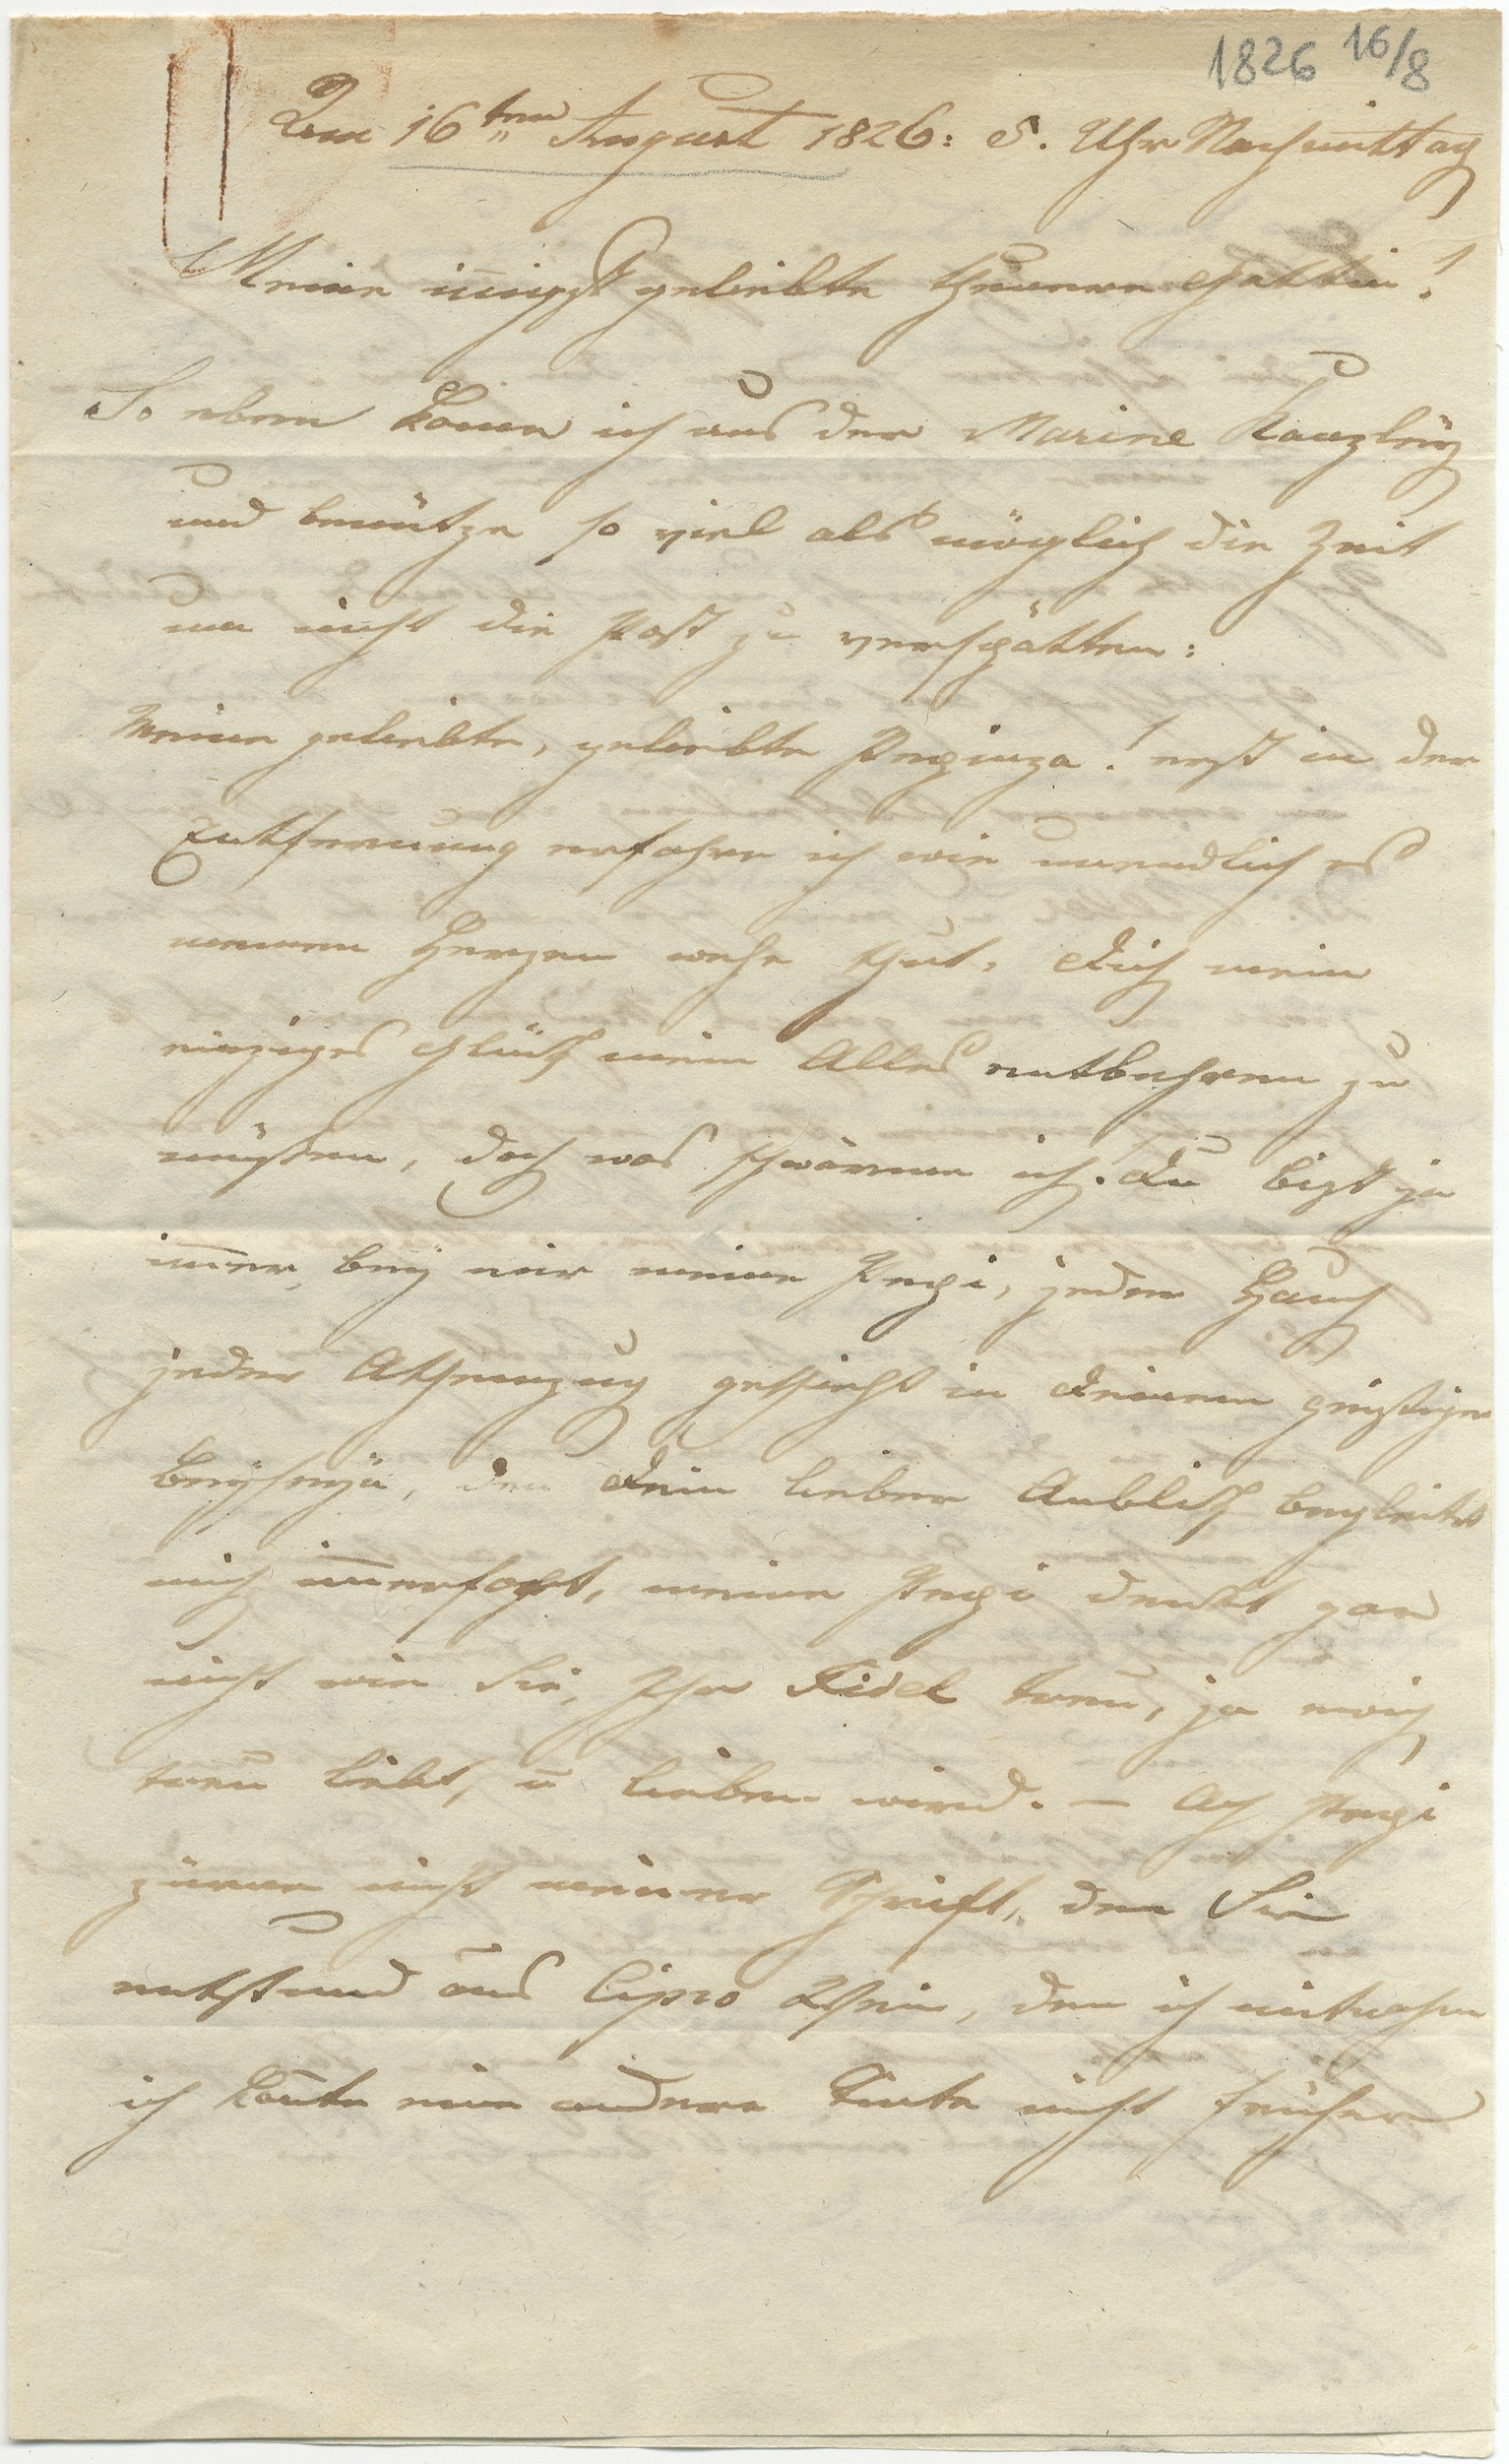 1826 16/8
Den 16ten August 1826: 5. Uhr Nachmittag
Meine in̅igst geliebte theuere Gattin!
So eben kome ich aus der Marine Kanzley
und benütze so viel als möglich die Zeit
um nicht die Post zu verspätten:
Meine geliebte, geliebte Pepinza! erst in der
Entfernung erfahre ich wie unendlich es
meinem Herzen wehe thut, Dich mein
einziges Glück mein Alles entbehren zu
müßen, doch was schwärme ich. Du bist ja
im̅er bey mir meine Pepi, jeder Hauch
jeder Athemzug geschieht in Deinem geistigen
Beyseyn, den Dein lieber Anblick begleitet
mich im̅erfort, meine Pepi denkt gar
nicht wie Sie, Ihr Fidel treu, ja ewig
treu liebt, u̅ lieben wird. – Ach Pepi
zürne nicht meiner Schrift, den Sie
entstand aus Cipro Wein, den ich mitnahm
ich kon̅te eine andere Tinte nicht früher